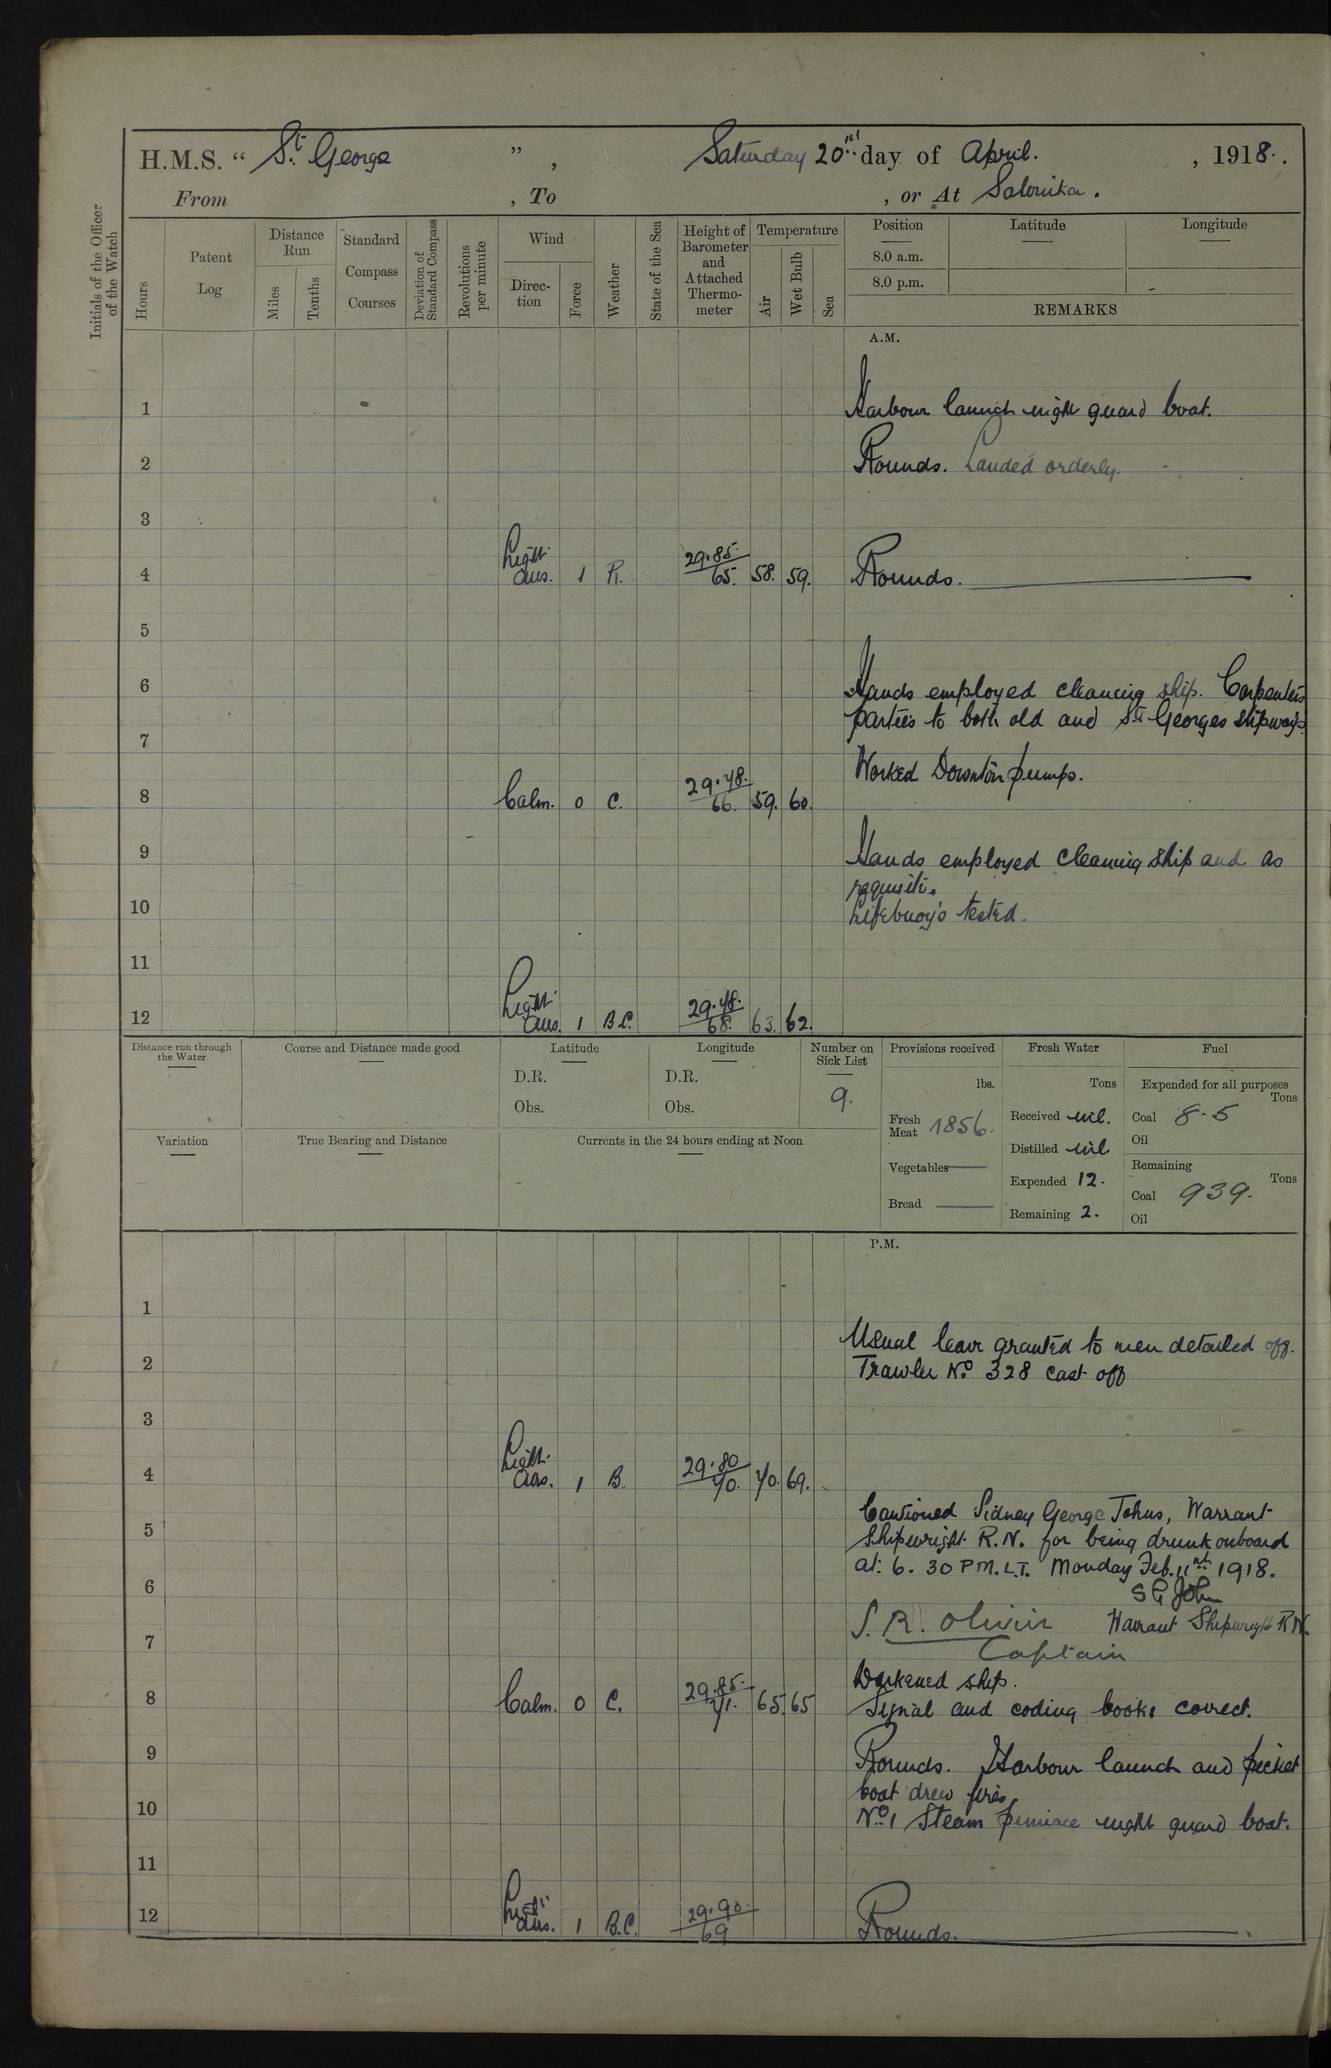 H.M.S. “ St George ” , Saturday 20th day of April. , 1918.
From , To , or At Salonika.
Initials of the Officer of the Watch
Hours
Patent Log
Distance Run
Miles
Tenths
Standard Compass Courses
Deviation of Standard Compass
Revolutions per minute
Wind
Direction
Force
Weather
State of the Sea
Height of Barometer and Attached Thermometer
Temperature
Air
Wet Bulb
Sea
Position
8.0 a.m.
8.0 p.m.
Latitude
Longitude
REMARKS
A.M.
1 Harbour launch night guard boat.
2 Rounds. Landed orderly.
3
4 Light airs. 1 R. 29.85. 65. 58. 59. Rounds.
5
6 Hands employed cleaning ship. Carpenters
parties to both old and St Georges slipways
7
Worked Downton pumps.
8 Calm. 0 C. 29.78. 66. 59. 60.
9 Hands employed cleaning ship and as
requisite.
10 Lifebuoy's tested.
11
12 Light airs. 1 B.C. 29.78. 68. 63. 62.
Distance run through the Water
Course and Distance made good
Latitude
D.R.
Obs.
Longitude
D.R.
Obs.
Number on Sick List
9.
Provisions received
lbs.
Fresh Meat 1856.
Vegetables
Bread
Fresh Water
Tons
Received nil.
Distilled nil.
Expended 12.
Remaining 2.
Fuel
Expended for all purposes
Tons
Coal 8.5
Oil
Remaining
Tons
Coal 939.
Oil
Variation
True Bearing and Distance
Currents in the 24 hours ending at Noon
P.M.
1
Usual leave granted to men detailed off.
2 Trawler No. 328 cast off
3
4 Light airs. 1 B. 29.80 70. 70. 69.
Cautioned Sidney George Johns, Warrant
5 Shipwright R.N. for being drunk onboard
at: 6. 30 PM. L.T. Monday Feb. 11th 1918.
6 S G John
S. R. Olivier Warrant Shipwright RN.
7 Captain
Darkened ship.
8 Calm. 0 C. 29.85. 71. 65 65 Signal and coding books correct.
9 Rounds. Harbour launch and picket
boat drew fires.
10 No. 1 Steam pinnace night guard boat.
11
12 Light airs. 1 B.C. 29.90. 69 Rounds.